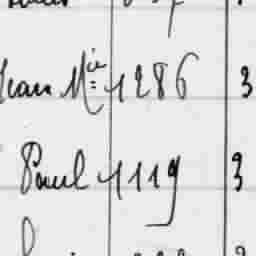 Jean Mie 1286 3
Paul 1119 3